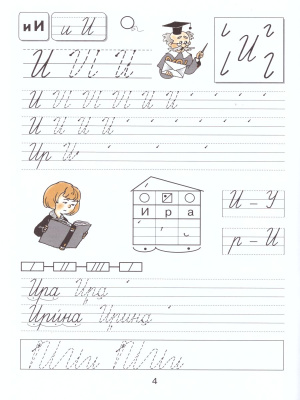 иИ и И
И И И
И И И И И И
И И И И
Ир И
И р а
И – У
р – И
Ира Ира
Ирина Ирина
4